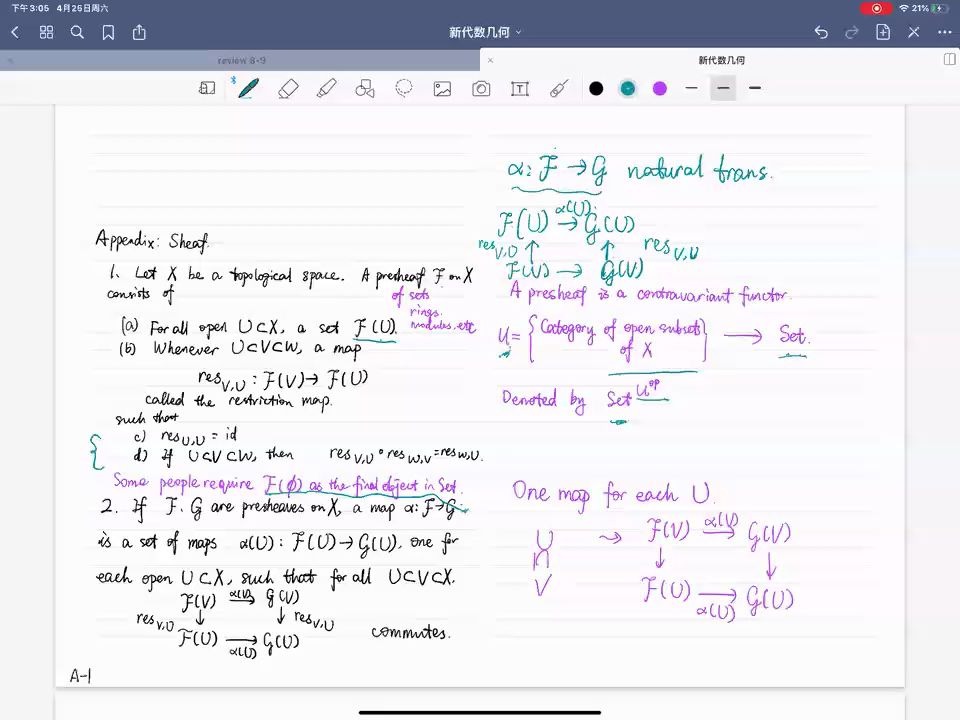 下午3:05 4月25日周六
21%
新代数几何
review 8-9
新代数几何
Appendix: Sheaf.
1. Let X be a topological space. A presheaf F on X
of sets
consists of
rings.
modules. etc
(a) For all open U⊂X, a set F(U).
(b) Whenever U⊂V⊂W, a map
res_{V,U} : F(V) → F(U)
called the restriction map.
such that
c) res_{U,U} = id
d) If U⊂V⊂W, then res_{V,U} ∘ res_{W,V} = res_{W,U}.
Some people require F(∅) as the final object in Set.
2. If F. G are presheaves on X, a map α: F→G
is a set of maps α(U) : F(U) → G(U), one for
each open U⊂X, such that for all U⊂V⊂X.
F(V) α(V) → G(V)
res_{V,U} ↓ ↓ res_{V,U}
F(U) → G(U) commutes.
α(U)
A-1
α: F → G natural trans.
α(U)
F(U) → G(U)
res_{V,U} ↑ ↑ res_{V,U}
F(V) → G(V)
A presheaf is a contravariant functor.
U = {Category of open subsets of X} → Set.
Denoted by Set^{U^{op}}
One map for each U.
U ⇝ F(V) α(V) → G(V)
∩ ↓ ↓
V F(U) → G(U)
α(U)